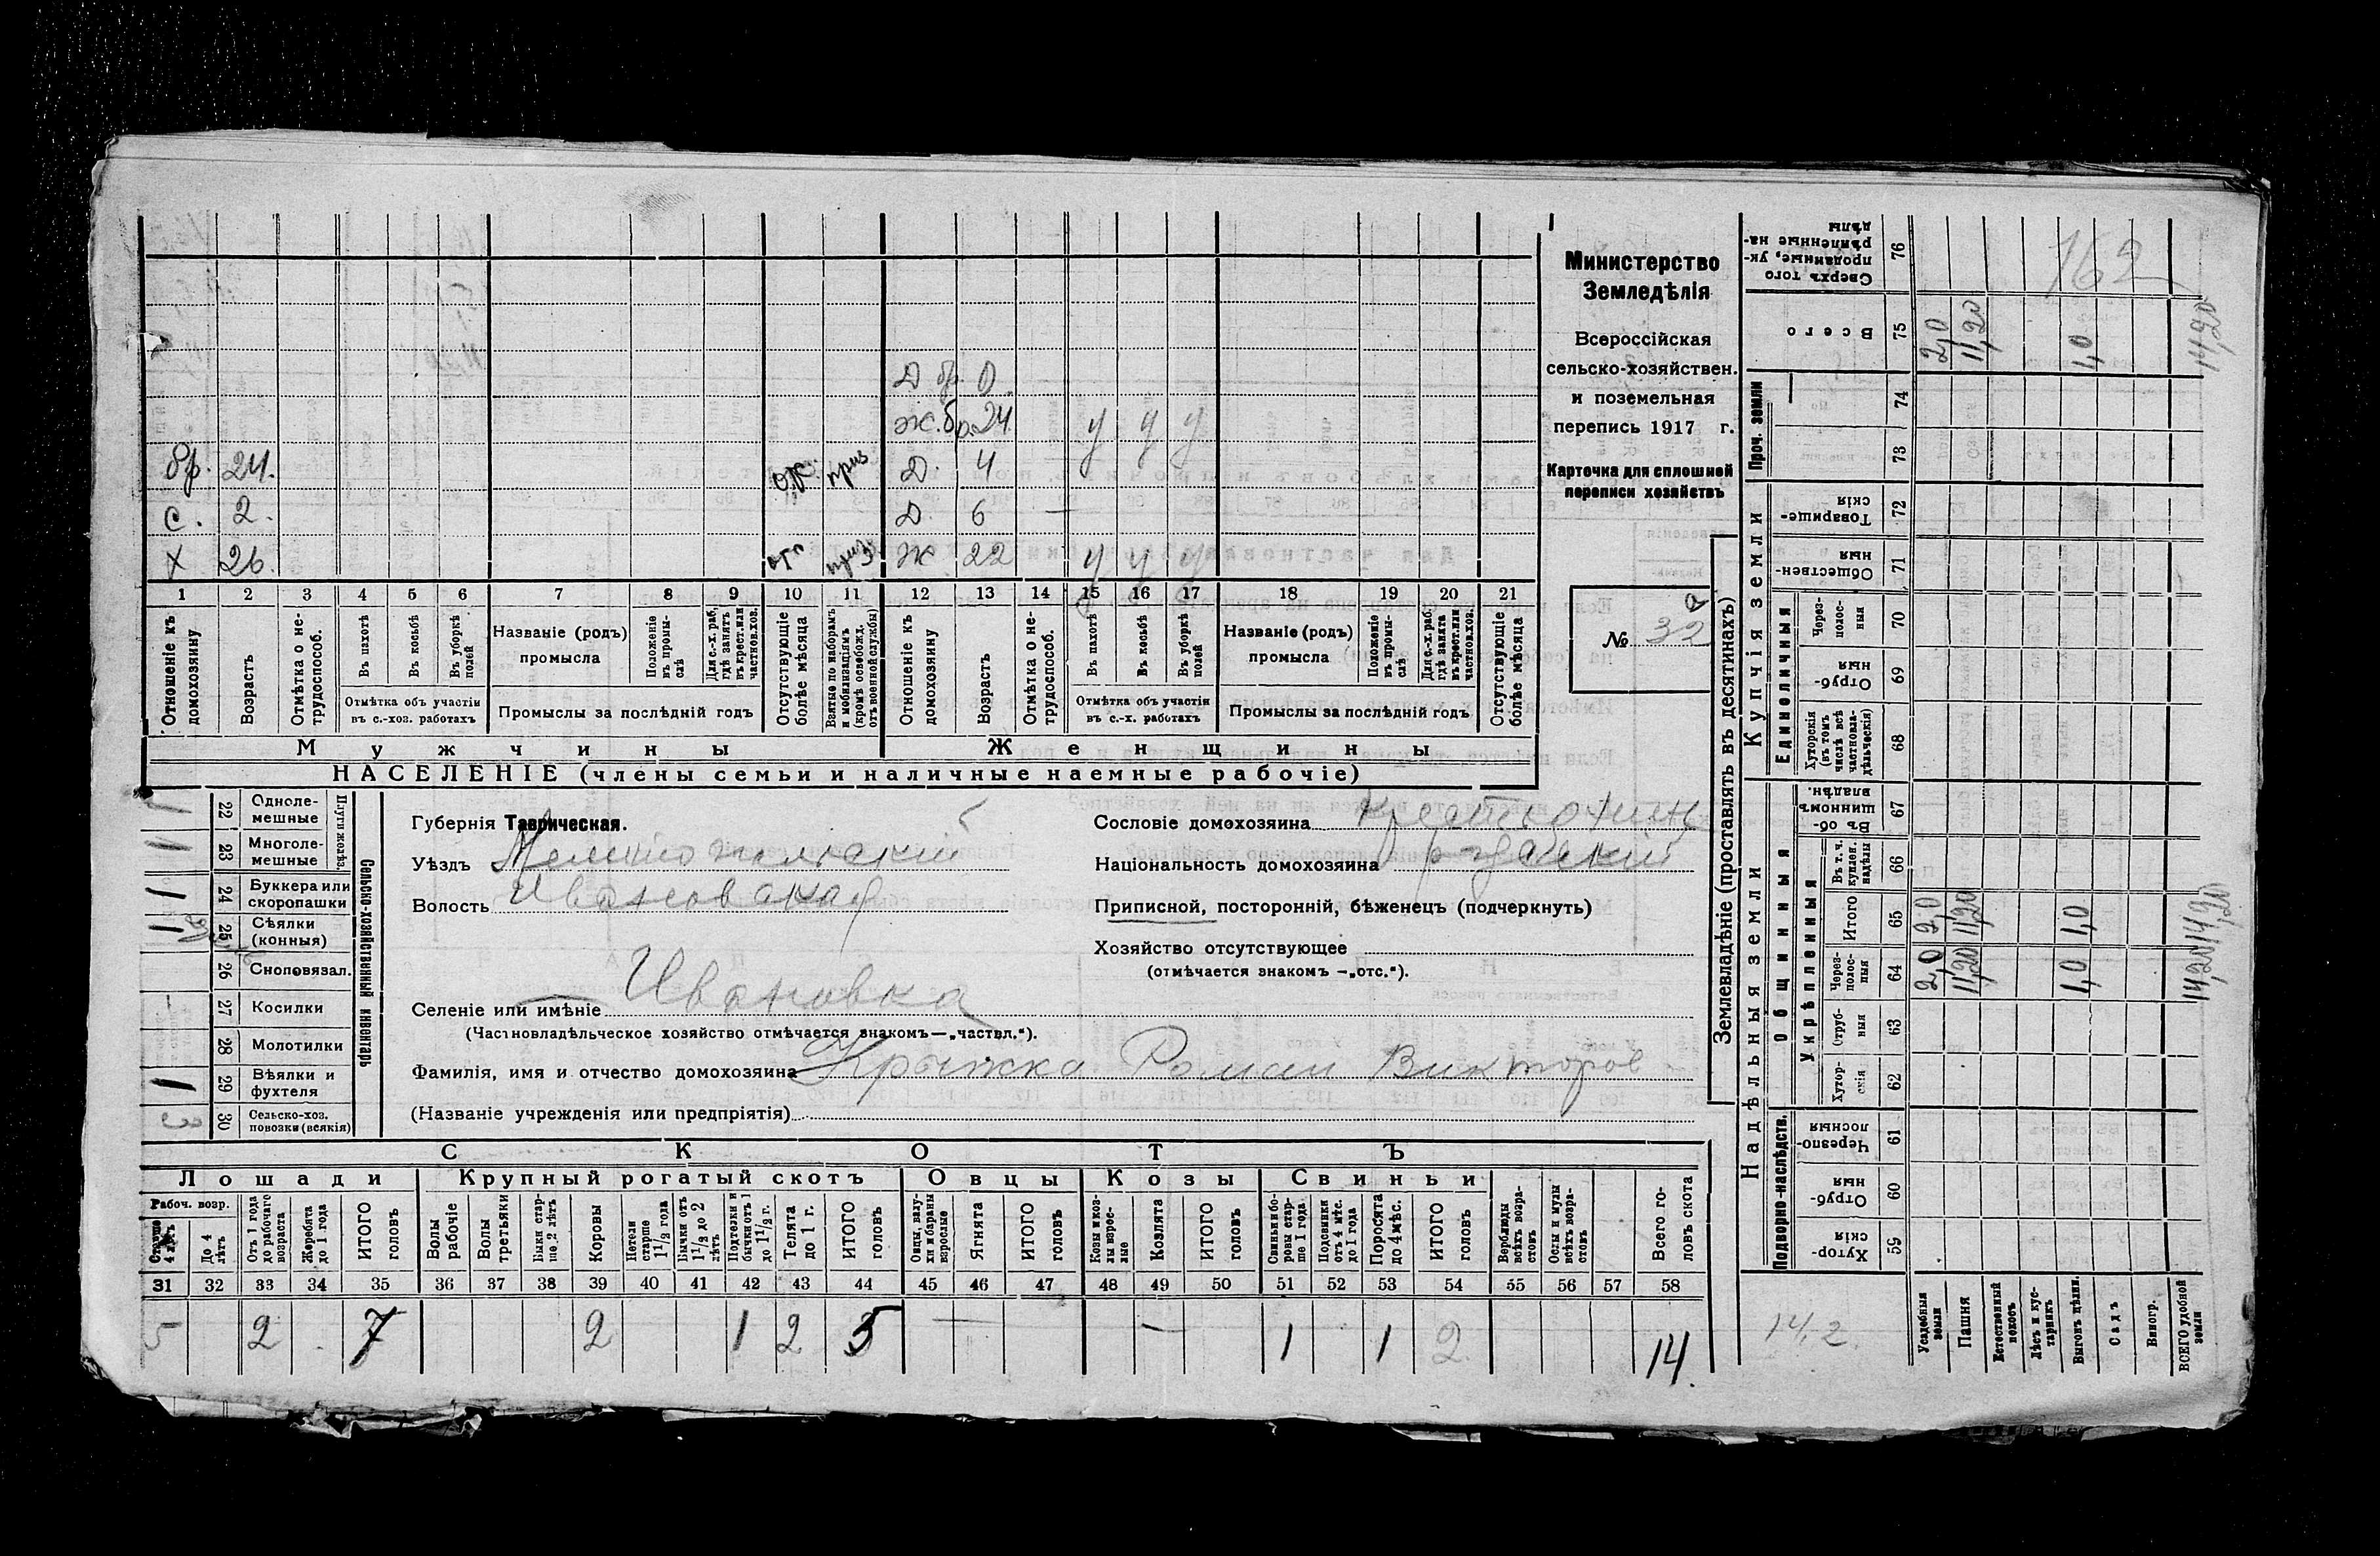 Д бр. 0
Ж. бр. 24. у у у
бр. 24. отс. приз Д. 4
С. 2. Д. 6 —
Х 26. отс приз. Ж 22 у у у
1 2 3 4 5 6 7 8 9 10 11 12 13 14 15 16 17 18 19 20 21
Отношеніе къ домохозяину
Возрастъ
Отмѣтка о нетрудоспособ.
Въ пахотѣ
Въ косьбѣ
Въ уборкѣ полей
Отмѣтка объ участіи въ с.-хоз. работахъ
Названіе (родъ) промысла
Положеніе въ промыслѣ
Для с.-х. раб. гдѣ занятъ въ крест. или частнов. хоз.
Промыслы за послѣдній годъ
Отсутствующіе болѣе мѣсяца
Взятые по наборамъ и мобилизаціямъ (кромѣ освобожд. отъ военной службы)
Отношеніе къ домохозяину
Возрастъ
Отмѣтка о нетрудоспособ.
Въ пахотѣ
Въ косьбѣ
Въ уборкѣ полей
Отмѣтка объ участіи въ с.-х. работахъ
Названіе (родъ) промысла
Положеніе въ промыслѣ
Для с.-х. раб. гдѣ занята въ крест. или частнов. хоз.
Промыслы за послѣдній годъ
Отсутствующіе болѣе мѣсяца
Мужчины Женщины
НАСЕЛЕНІЕ (члены семьи и наличные наемные рабочіе)
Министерство
Земледѣлія
Всероссійская
сельско-хозяйствен.
и поземельная
перепись 1917 г.
Карточка для сплошной
переписи хозяйствъ
№ 32 а
Сельско-хозяйственный инвентарь
Плуги желѣз.
22 Одноле-мешные
23 Многоле-мешные
24 Буккера или скоропашки 1
25 Сѣялки (конныя) 1
26 Сноповязал.
27 Косилки —
28 Молотилки
29 Вѣялки и фухтеля 1
30 Сельско-хоз. повозки (всякія) 3
Губернія Таврическая.
Уѣздъ Мелитопольский
Волость Ивановская
Селеніе или имѣніе Ивановка
(Частновладѣльческое хозяйство отмѣчается знакомъ—„частвл.“).
Фамилія, имя и отчество домохозяина Крыжка Роман Викторов
(Названіе учрежденія или предпріятія)
Сословіе домохозяина крестьянинъ
Національность домохозяина русский
Приписной, посторонній, бѣженецъ (подчеркнуть)
Хозяйство отсутствующее
(отмѣчается знакомъ —„отс.“).
СКОТЪ
Лошади Крупный рогатый скотъ Овцы Козы Свиньи
Рабоч. возр.
Старше 4 лѣтъ
До 4 лѣтъ
Отъ 1 года до рабочаго возраста
Жеребята до 1 года
ИТОГО головъ
Волы рабочіе
Волы третьяки
Быки старше 2 лѣтъ
Коровы
Нетели старше 1 1/2 года
Бычки отъ 1 1/2 до 2 лѣтъ
Подтелки и бычки отъ 1 до 1 1/2 г.
Телята до 1 г.
ИТОГО головъ
Овцы, валухи и бараны взрослые
Ягнята
ИТОГО головъ
Козы и козлы взрослые
Козлята
ИТОГО головъ
Свиньи и боровы старше 1 года
Подсвинки отъ 4 мѣс. до 1 года
Поросята до 4 мѣс.
ИТОГО головъ
Верблюды всѣхъ возрастовъ
Ослы и мулы всѣхъ возрастовъ
Всего головъ скота
31 32 33 34 35 36 37 38 39 40 41 42 43 44 45 46 47 48 49 50 51 52 53 54 55 56 57 58
5 2 7 2 1 2 5 — — 1 1 2 14.
Землевладѣніе (проставлять въ десятинахъ)
Надѣльныя земли
Купчія земли
Проч. земли
Подворно-наслѣдств.
Общинныя
Укрѣпленныя
Единоличныя
Сверхъ того проданные, укрѣпленные надѣлы 76
Всего 75 2,0 11,20 1,0 14,20
74
73
Товарищескія 72
Общественныя 71
Черезполосныя 70
Отрубныя 69
Хуторскія (въ томъ числѣ всѣ частновладѣльческія) 68
Въ общинномъ владѣн. 67
Въ т. ч. куплен. надѣлы 66
Итого 65 2,0 11,20 1,0 14,20
Черезполосныя 64 2,0 11,20 1,0 14,20
Отрубныя 63
Хуторскія 62
Черезполосныя 61
Отрубныя 60
Хуторскія 59
Усадебныя земли
Пашня
Естественный покосъ
Лѣсъ и кустарникъ
Выгонъ цѣлин.
Садъ
Виногр.
ВСЕГО удобной земли
162
14,2